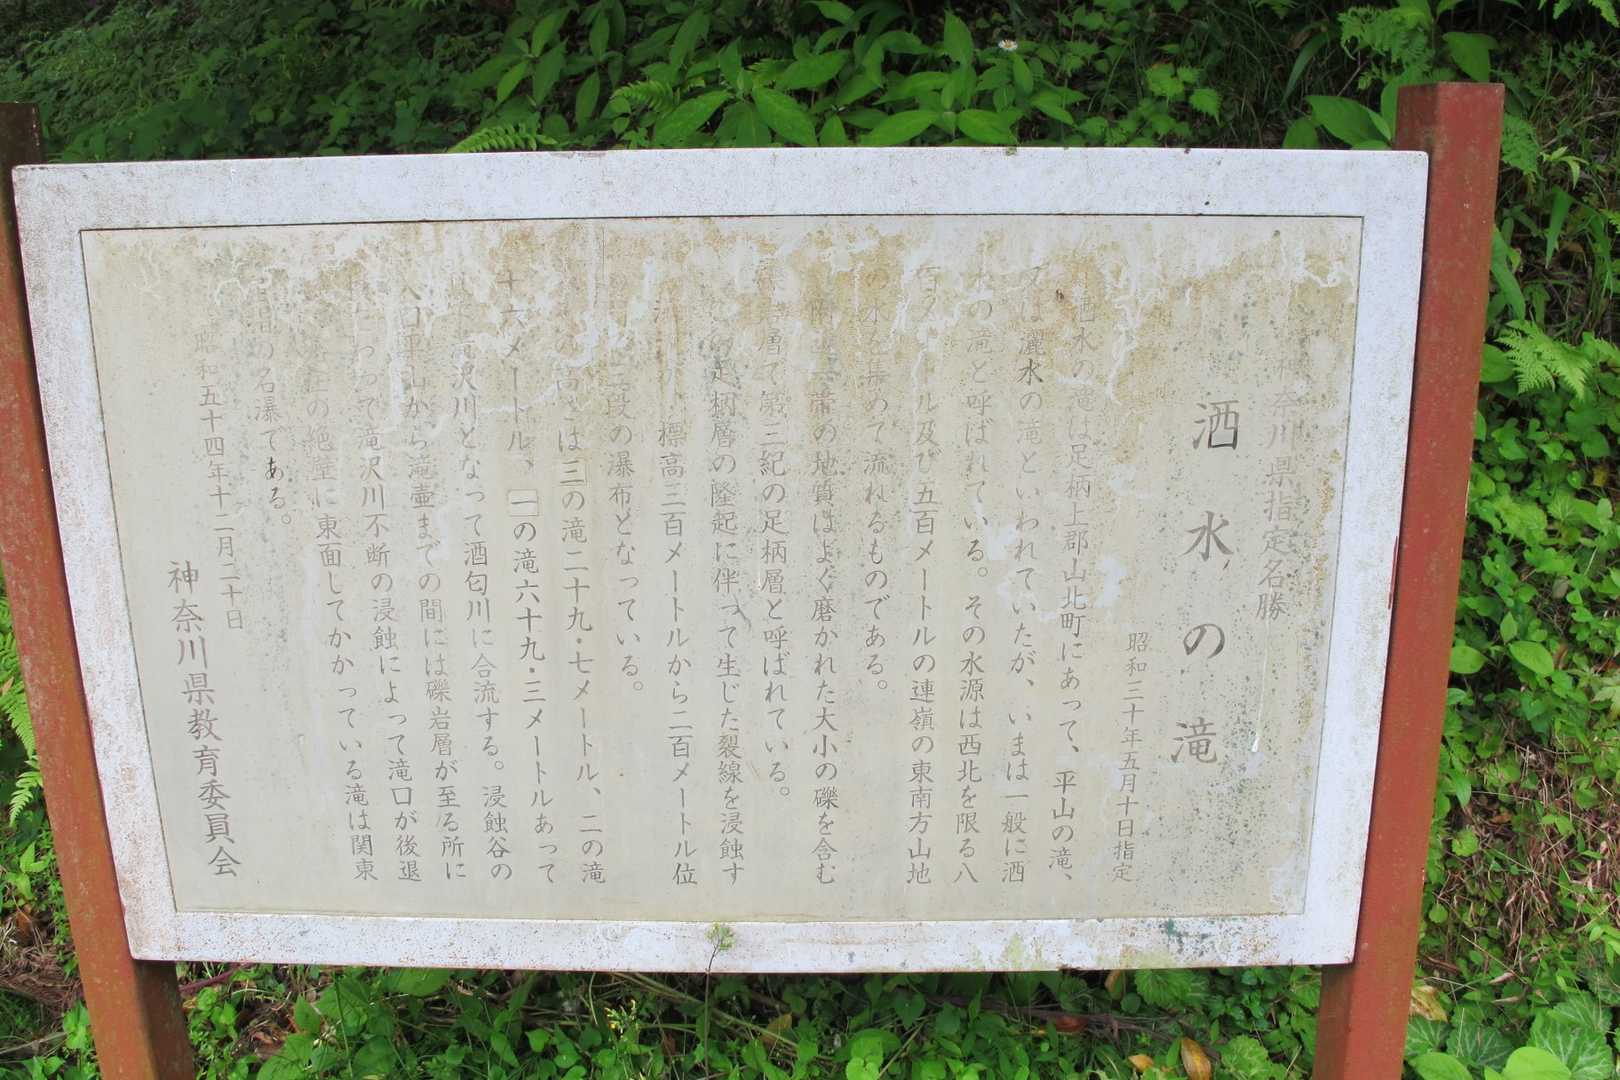 神奈川県指定名勝
洒水の滝
昭和三十年五月十日指定
洒水の滝は足柄上郡山北町にあって、平山の滝、
又は灑水の滝といわれていたが、いまは一般に洒
水の滝と呼ばれている。その水源は西北を限る八
百メートル及び五百メートルの連嶺の東南方山地
の水を集めて流れるものである。
附近一帯の地質はよく磨かれた大小の礫を含む
層で第三紀の足柄層と呼ばれている。
足柄層の隆起に伴って生じた裂線を浸蝕す
標高三百メートルから二百メートル位
三段の瀑布となっている。
の高さは三の滝二十九・七メートル、二の滝
十六メートル、一の滝六十九・三メートルあって
滝沢川となって酒匂川に合流する。浸蝕谷の
入口平山から滝壷までの間には礫岩層が至る所に
わって滝沢川不断の浸蝕によって滝口が後退
の絶壁に東面してかかっている滝は関東
の名瀑である。
昭和五十四年十二月二十日
神奈川県教育委員会